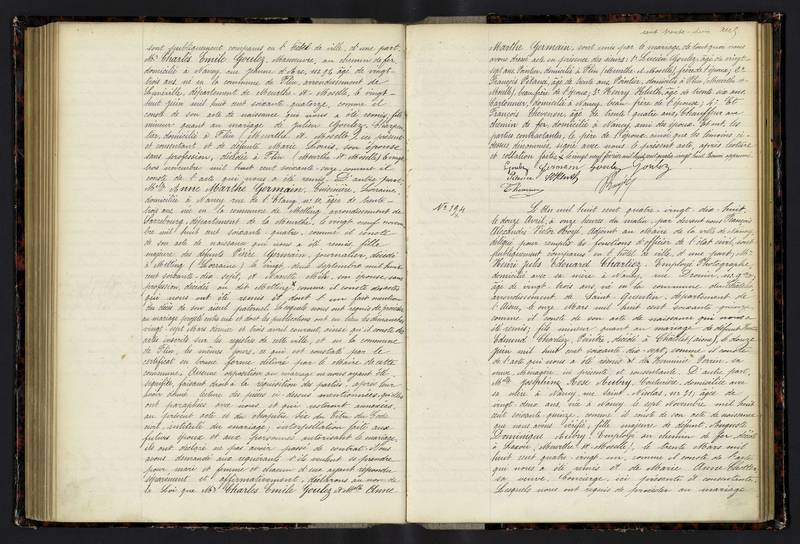 sont publiquement comparus en l'hôtel de ville, d'une part
Mr. Charles Emile Goulez, Manœuvre, au chemin de fer
domicilié à Nancy rue Jeanne d'Arc, âgé de vingt
trois ans, né en la commune de Flin, arrondissement de
Lunéville, département de Meurthe et Moselle, le vingt
huit juin mil huit cent soixante quatorze, comme il
conste de son acte de naissance qui nous a été remis, fils
mineur quant au mariage de Julien Goulez
domicilié à Flin (Meurthe et Moselle) ici présent
et consentant et de défunte Marie Louis, son épouse
sans profession, décédée à Flin (Meurthe et Moselle) le vingt
trois novembre mil huit cent soixante onze, comme il
conste de l'acte qui nous a été remis. D'autre part
Melle Anne Marthe Germain, Cuisinière, Lorraine,
domiciliée à Nancy rue de l'Etang no 12, âgée de trente
trois ans, née en la commune de Molling arrondissement de
Sarrebourg, département de la Meurthe, le vingt neuf novem
bre mil huit cent soixante quatre, comme il conste
de son acte de naissance qui nous a été remis, fille
majeure des défunts Pierre Germain, journalier, décédé
à Molling (Lorraine) le vingt deux septembre mil huit
cent soixante dix sept, et son épouse, sans
profession, décédée au dit Molling comme il conste des actes
qui nous ont été remis et dont l'un fait mention
du décès de son aïeul paternel. Lesquels nous ont requis de procéder
au mariage projeté entre eux et dont les publications ont eu lieu les dimanches
vingt sept Mars dernier et trois avril courant, ainsi qu'il conste des
actes inscrits sur les registres de cette ville, et en la commune
de Flin, les mêmes jours, ce qui est constaté par le
certificat en bonne forme délivré par le Maire de cette
commune. Aucune opposition au mariage ne nous ayant été
signifiée, faisant droit à la réquisition des parties, après leur
avoir donné lecture des pièces ci-dessus mentionnées, qu'elles
ont paraphées avec nous et qui resteront annexées
au présent acte et du chapitre six du titre du Code
civil, intitulé du mariage; interpellation faite aux
futurs époux et aux personnes autorisant le mariage,
ils ont déclaré ne pas avoir passé de contrat. Nous
avons demandé aux requérants s'ils veulent se prendre
pour mari et femme et chacun d'eux ayant répondu
séparément et affirmativement, déclarons au nom de
la Loi que Mr. Charles Emile Goulez et Melle Anne
Marthe Germain, sont unis par le mariage, de tout quoi nous
avons dressé acte en présence des sieurs: 1º Lucien Goulez, âgé de vingt
sept ans, Peintre, domicilié à Flin (Meurthe et Moselle), frère de l'époux; 2º
François Pelarue, âgé de trente ans, Peintre, domicilié à Flin, (Meurthe et
Moselle), beau-frère de l'époux; 3º Henry Kluth, âgé de trente six ans,
Cartonnier, domicilié à Nancy, beau frère de l'épouse; 4º Et
François Thevenin, âgé de trente quatre ans, Chauffeur au
chemin de fer, domicilié à Nancy, ami des époux. Et ont, les
parties contractantes, le père de l'époux, ainsi que les témoins ci-
dessus dénommés, signé avec nous le présent acte, après lecture
et collation faites
Goulez Germain Goulez Goulez
No 194
L'An mil huit cent quatre-vingt-dix-huit,
le douze Avril, à onze heures du matin, par devant nous François
Alexandre Victor Boyé, adjoint au Maire de la ville de Nancy,
délégué pour remplir les fonctions d'officier de l'état civil, sont
publiquement comparus en l'hôtel de ville, d'une part, Mr.
Henri Jules Edouard Charlier, Employé Photographe,
domicilié avec sa mère à Nancy, rue Drouin, no 9,
âgé de vingt trois ans, né en la commune du Catelet,
arrondissement de Saint Quentin, département de
l'Aisne, le onze Mars mil huit cent soixante quinze,
comme il conste de son acte de naissance qui nous a
été remis, fils mineur quant au mariage de défunt
Edmond Charlier, Peintre, décédé à (Aisne), le douze
juin mil huit cent soixante dix-sept, comme il conste
de l'acte qui nous a été remis et de
veuve, Ménagère, ici présente et consentante. D'autre part,
Melle Joséphine Rose Aubry, Couturière, domiciliée avec
sa mère à Nancy, rue Saint Nicolas, no 31, âgée de
vingt deux ans, née à Nancy le sept Novembre mil huit
cent soixante quinze, comme il conste de son acte de naissance
que nous avons vérifié, fille majeure de défunt, Auguste
Dominique Aubry, Employé au chemin de fer, décédé
à (Meurthe et Moselle), le trente Mars mil
huit cent quatre vingt un, comme il conste de l'acte
qui nous a été remis et de Marie Anne
sa veuve, Concierge, ici présente et consentante.
Lesquels nous ont requis de procéder au mariage